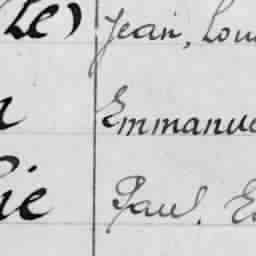 (Le) Jean, Lou
Emmanue
ie Paul. E